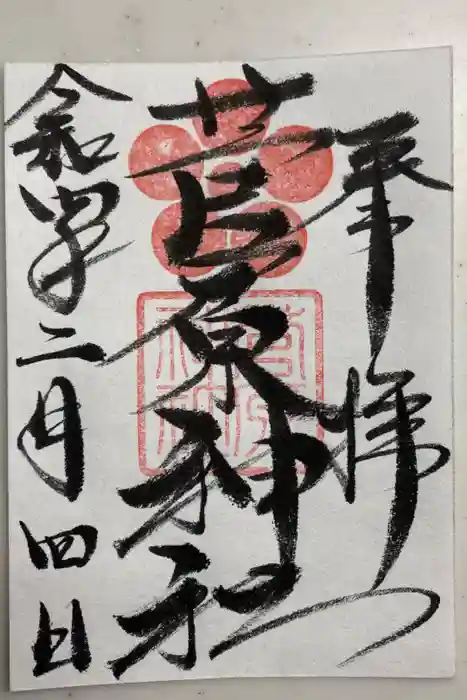 奉拝
菅原神社
令和四年二月四日